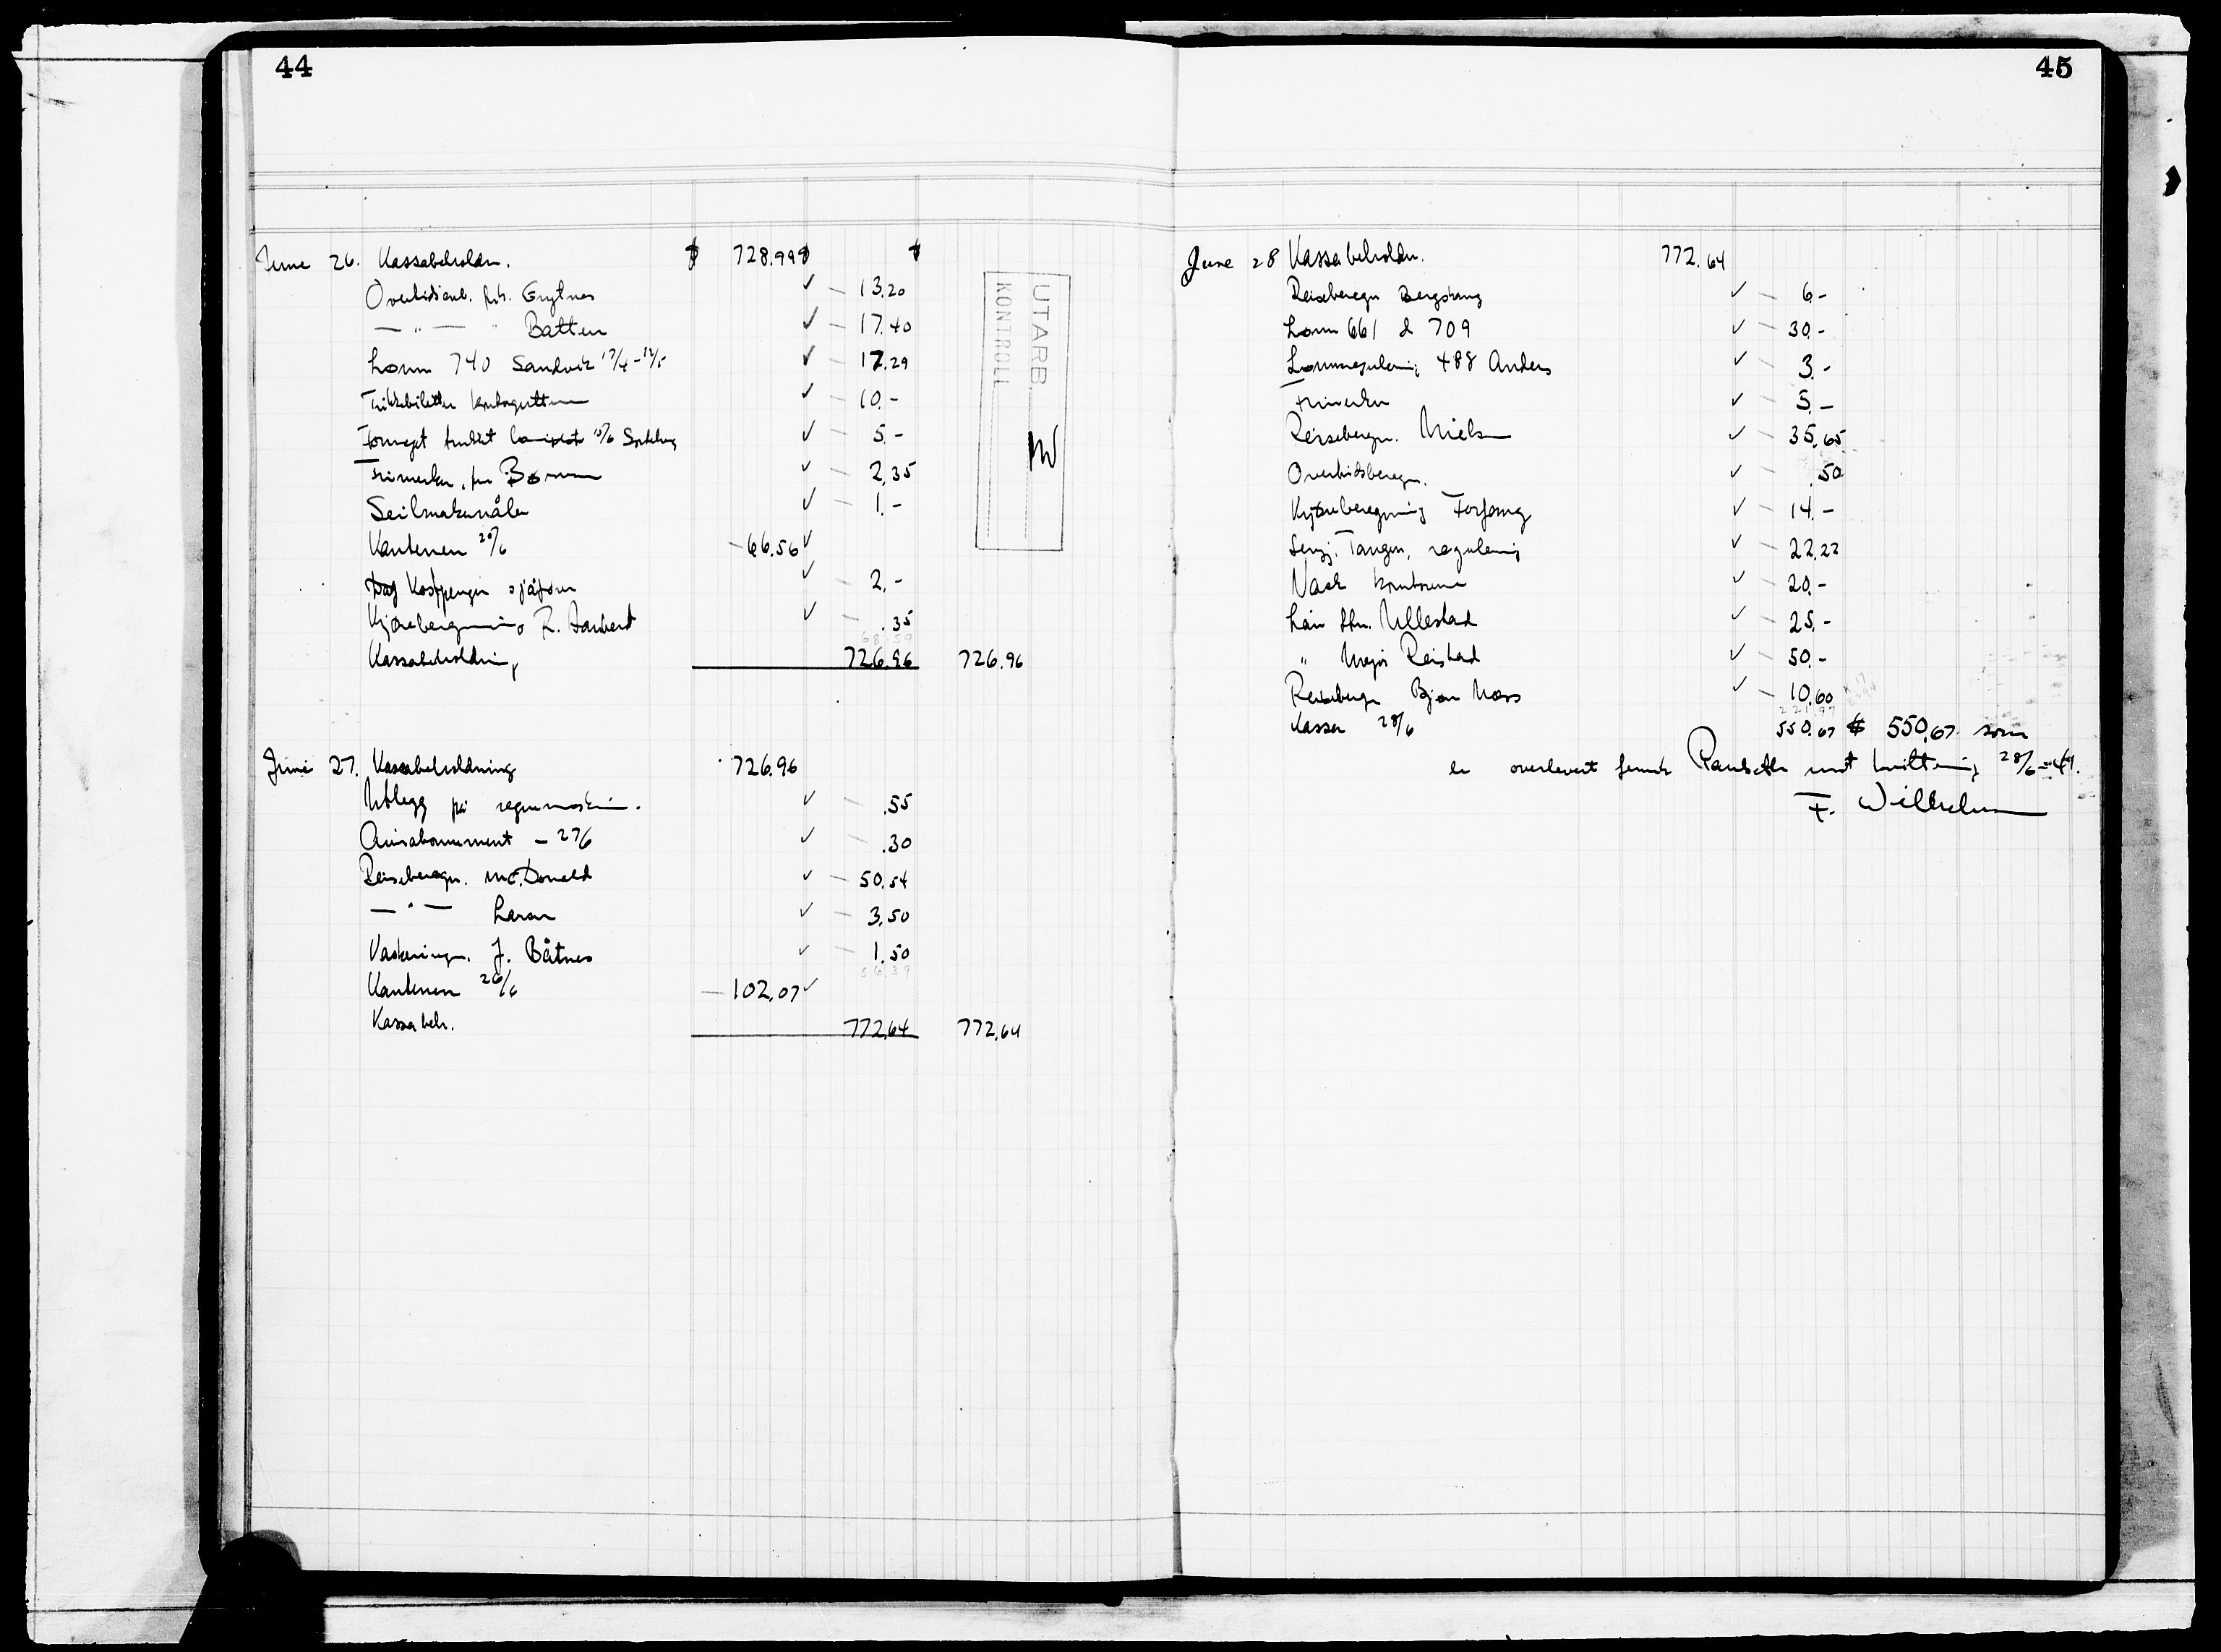 44
June 26. Kassabeholdn. $ 728.99 $ $
Overtidsarb. Grytnes ✓ — 13.20
— " — " Batten ✓ — 17.40
Lønn 740 Sandvik 17/4 - 12/5 ✓ — 17.29
Trikkebiletter ✓ — 10.-
✓ 5.-
Frimerker, ✓ — 2.35
Seilmakernåler ✓ — 1.-
Kantinen 20/6 — 66.56 ✓
Kostpenger sjåfører ✓ — 2.-
R. ✓ — .35
68.59
Kassabeholdning 726.96 726.96
UTARB.
KONTROLL
June 27. Kassabeholdning 726.96
Utlegg på regnemaskin. ✓ — .55
Avisabonnement - 27/6 ✓ — .30
Reiseberegn. McDonald ✓ — 50.54
— " — Larsen ✓ — 3.50
J. Båtnes ✓ — 1.50
56.39
Kantinen 26/6 — 102.07 ✓
Kassabeh. 772.64 772.64
45
June 28 Kassabeholdn. 772.64
Reiseberegn Bergshaug ✓ — 6.-
Lønn 661 & 709 ✓ — 30.-
Lønnsregulering 488 Anders ✓ — 3.-
Frimerker ✓ — 5.-
Reiseberegn. Nielsen ✓ — 35.65
Overtidsberegn. ✓ .50
Kjøreberegning ✓ — 14.-
Sersj. Tangen, regulering ✓ — 22.22
Vask kontorene ✓ — 20.-
Lån Ullestad ✓ — 25.-
" Major Reistad ✓ — 50.-
Reiseberegn Bjørn Næss ✓ — 10.60
221.97
Kassa 28/6 550.67 $ 550.67 som
er overlevert mot kvittering 28/6-
F. Wilhelmsen